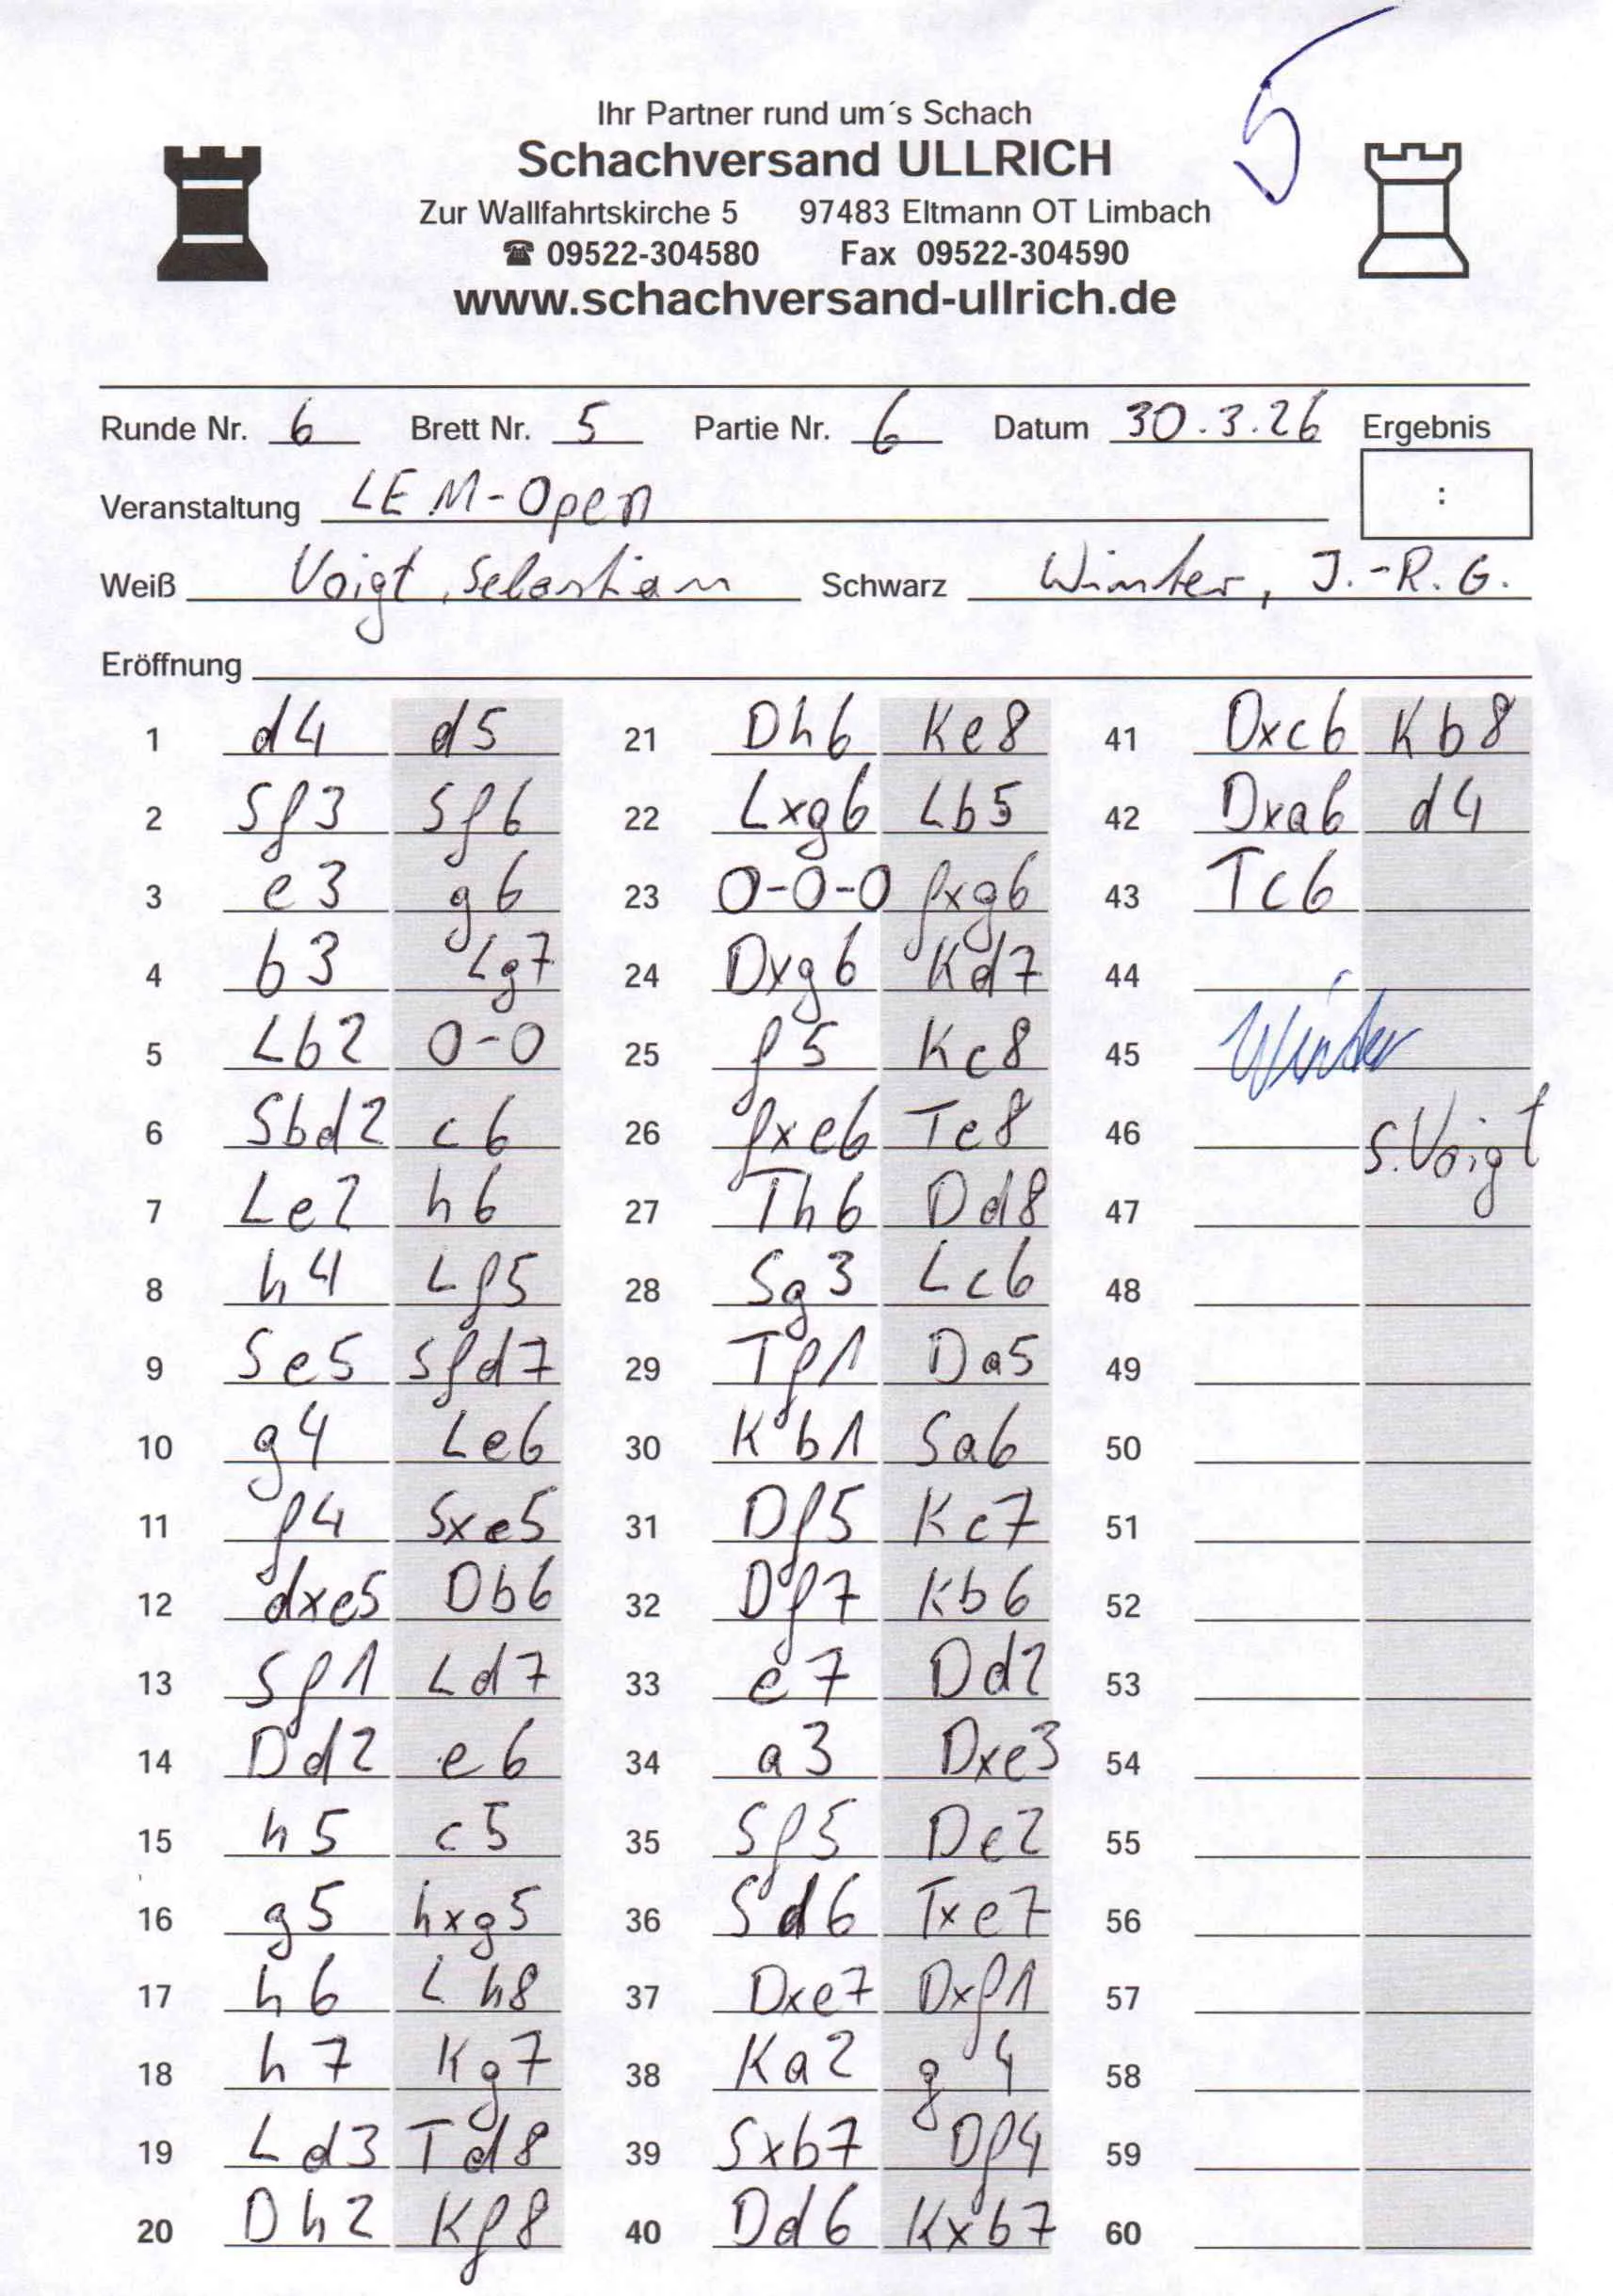 5
Ihr Partner rund um´s Schach
Schachversand ULLRICH
Zur Wallfahrtskirche 5 97483 Eltmann OT Limbach
☎ 09522-304580 Fax 09522-304590
www.schachversand-ullrich.de
Runde Nr. 6 Brett Nr. 5 Partie Nr. 6 Datum 30.3.26 Ergebnis
:
Veranstaltung LEM-Open
Weiß Voigt, Sebastian Schwarz Winter, J.-R. G.
Eröffnung
1 d4 d5 21 Dh6 Ke8 41 Dxc6 Kb8
2 Sf3 Sf6 22 Lxg6 Lb5 42 Dxa6 d4
3 e3 g6 23 0-0-0 fxg6 43 Tc6
4 b3 Lg7 24 Dxg6 Kd7 44
5 Lb2 0-0 25 f5 Kc8 45 Winter
6 Sbd2 c6 26 fxe6 Te8 46 S.Voigt
7 Le2 h6 27 Th6 Dd8 47
8 h4 Lf5 28 Sg3 Lc6 48
9 Se5 Sfd7 29 Tf1 Da5 49
10 g4 Le6 30 Kb1 Sa6 50
11 f4 Sxe5 31 Df5 Kc7 51
12 dxe5 Db6 32 Df7 Kb6 52
13 Sf1 Ld7 33 e7 Dd2 53
14 Dd2 e6 34 a3 Dxe3 54
15 h5 c5 35 Sf5 De2 55
16 g5 hxg5 36 Sd6 Txe7 56
17 h6 Lh8 37 Dxe7 Dxf1 57
18 h7 Kg7 38 Ka2 g4 58
19 Ld3 Td8 39 Sxb7 Df4 59
20 Dh2 Kf8 40 Dd6 Kxb7 60